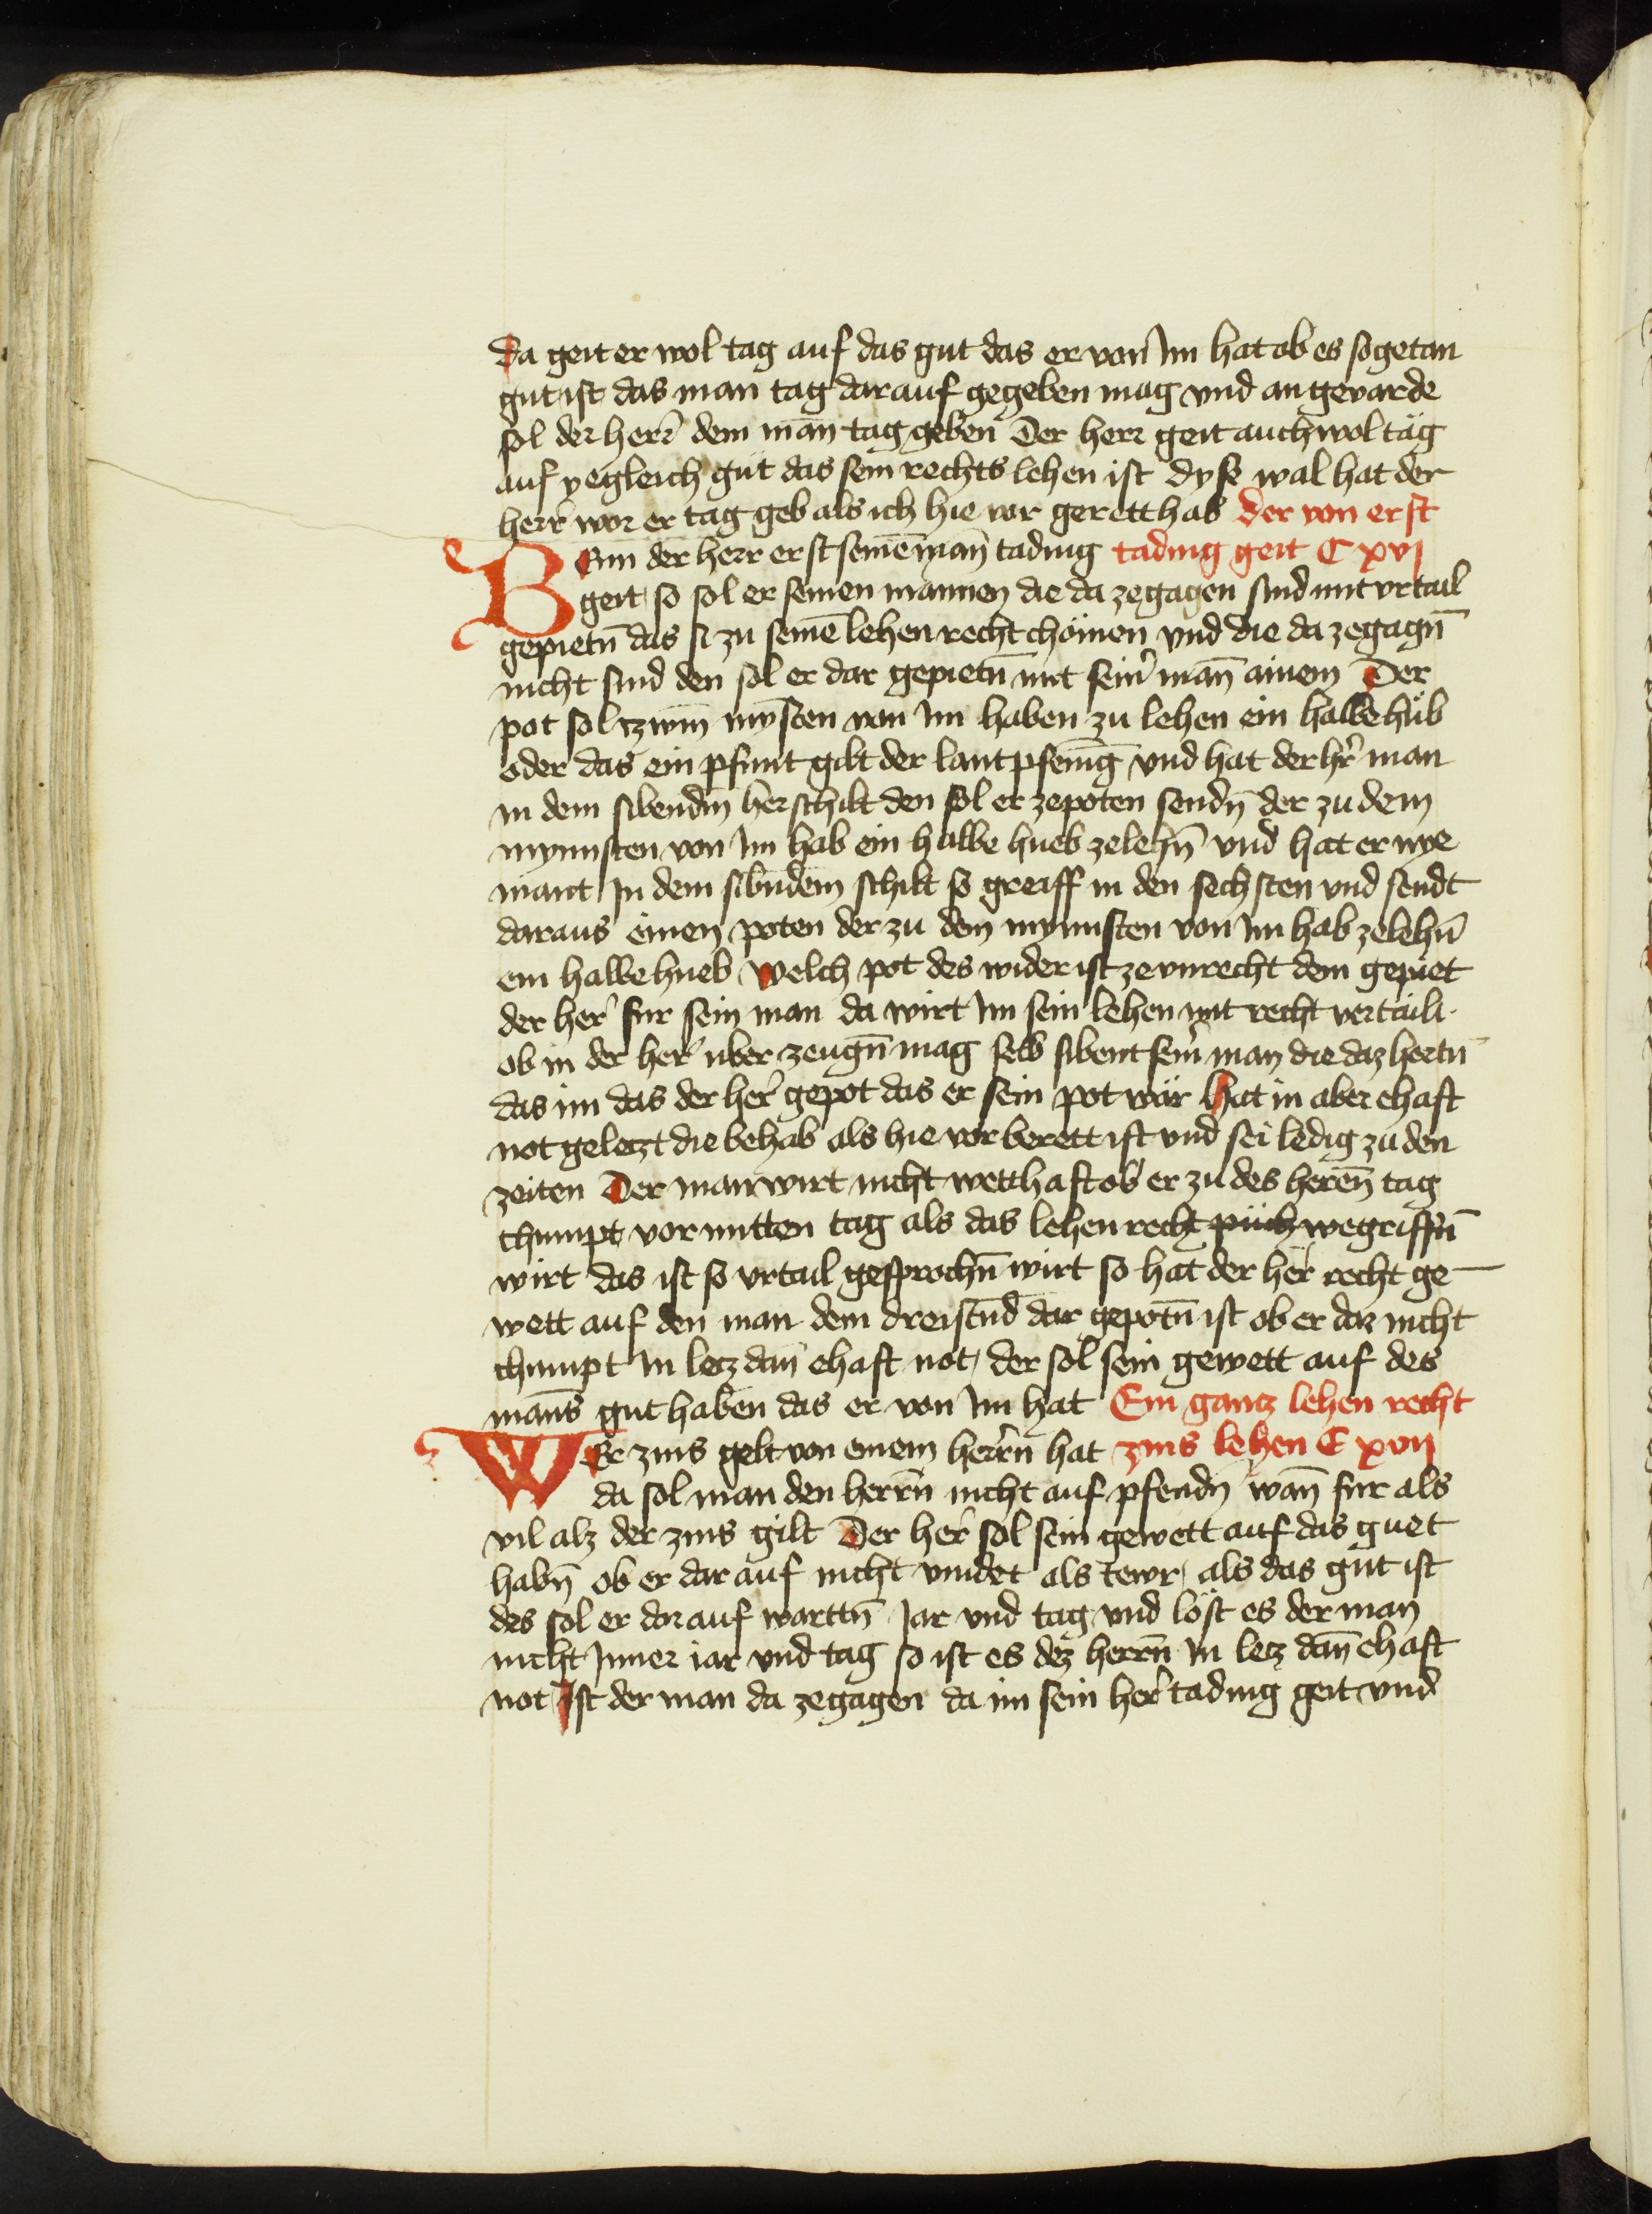 da geit er wol tag auf das gut das er von Im hat ob es sogetan
gut ist das man tag darauf gegeben mag vnd an gevarde
sol der herr dem man̄ tag geben Der herr geit auch wol täg
auf yegleich güt das sein rechts lehen ist dyse wal hat der
herr wor er tag geb als ich hie vor gerett hab der von erst
BEnn der herr erst seinē man̄ tading tading geit C xvj
geit so sol er seinen mannen die da zegagen sind mit vrtail
gepietn̄ das si zu seinē lehen recht chömen vnd die da zegagn̄
nicht sind den sol er dar gepietn̄ mit sein̄ man̄ ainem Der
pot sol tzwm̄ mȳsten von im haben zu lehen ein halbe hüb
oder das ein pfunt gilt der lantpfenīg vnd hat der hr̄ man
in dem sibendn̄ herschilt den sol er zepoten sendn̄ der zu dem
mynnsten von Im hab ein halbe hueb zelehn̄ vnd hat er nye
mant In dem sibndem schilt so greiff in den sechsten vnd sendt
daraus einen poten der zu dem mynnsten von im hab zelehn̄
ein halbe hueb Welch pot des wider ist ze vnrecht dem gepiet
der her̄ fur sein man da wirt Im sein lehen mit recht vertailt
ob in der her̄ uber zeugn̄ mag selb sibent sein̄ man die daz hortn̄
das im das der her̄ gepot das er sein pot wär hat in aber ehaft
not geletzt die behab als hie vor berett ist vnd sei ledig zu den
zeiten Der man wirt nicht wetthaft ob er zu des heren̄ tag
chumpt vor mitten tag als das lehen recht püch wegriffn̄
wirt das ist so vrtail gesprochn̄ wirt so hat der her̄ recht ge
wett auf den man dem dreistn̄d dar gepotn̄ ist ob er daz nicht
chumpt In letz dan̄ ehaft not der sol sein gewett auf des
man̄s gut haben das er von Im hat Ein gantz lehen recht
WEr zins gelt von einem herrn hat zins lehen C xvij
da sol man den herrn̄ nicht auf pfendn̄ wan̄ fur als
vil alz der zins gilt Der her̄ sol sein gewett auf das guet
habn̄ ob er dar auf nicht vindet als tewr als das gut ist
des sol er dor auf warttn̄ Jar vnd tag vnd löst es der man
nicht Inner iar vnd tag so ist es dez herrn̄ In letz dan̄ ehaft
not Ist der man da zegagen da im sein her̄ tading geit vnd